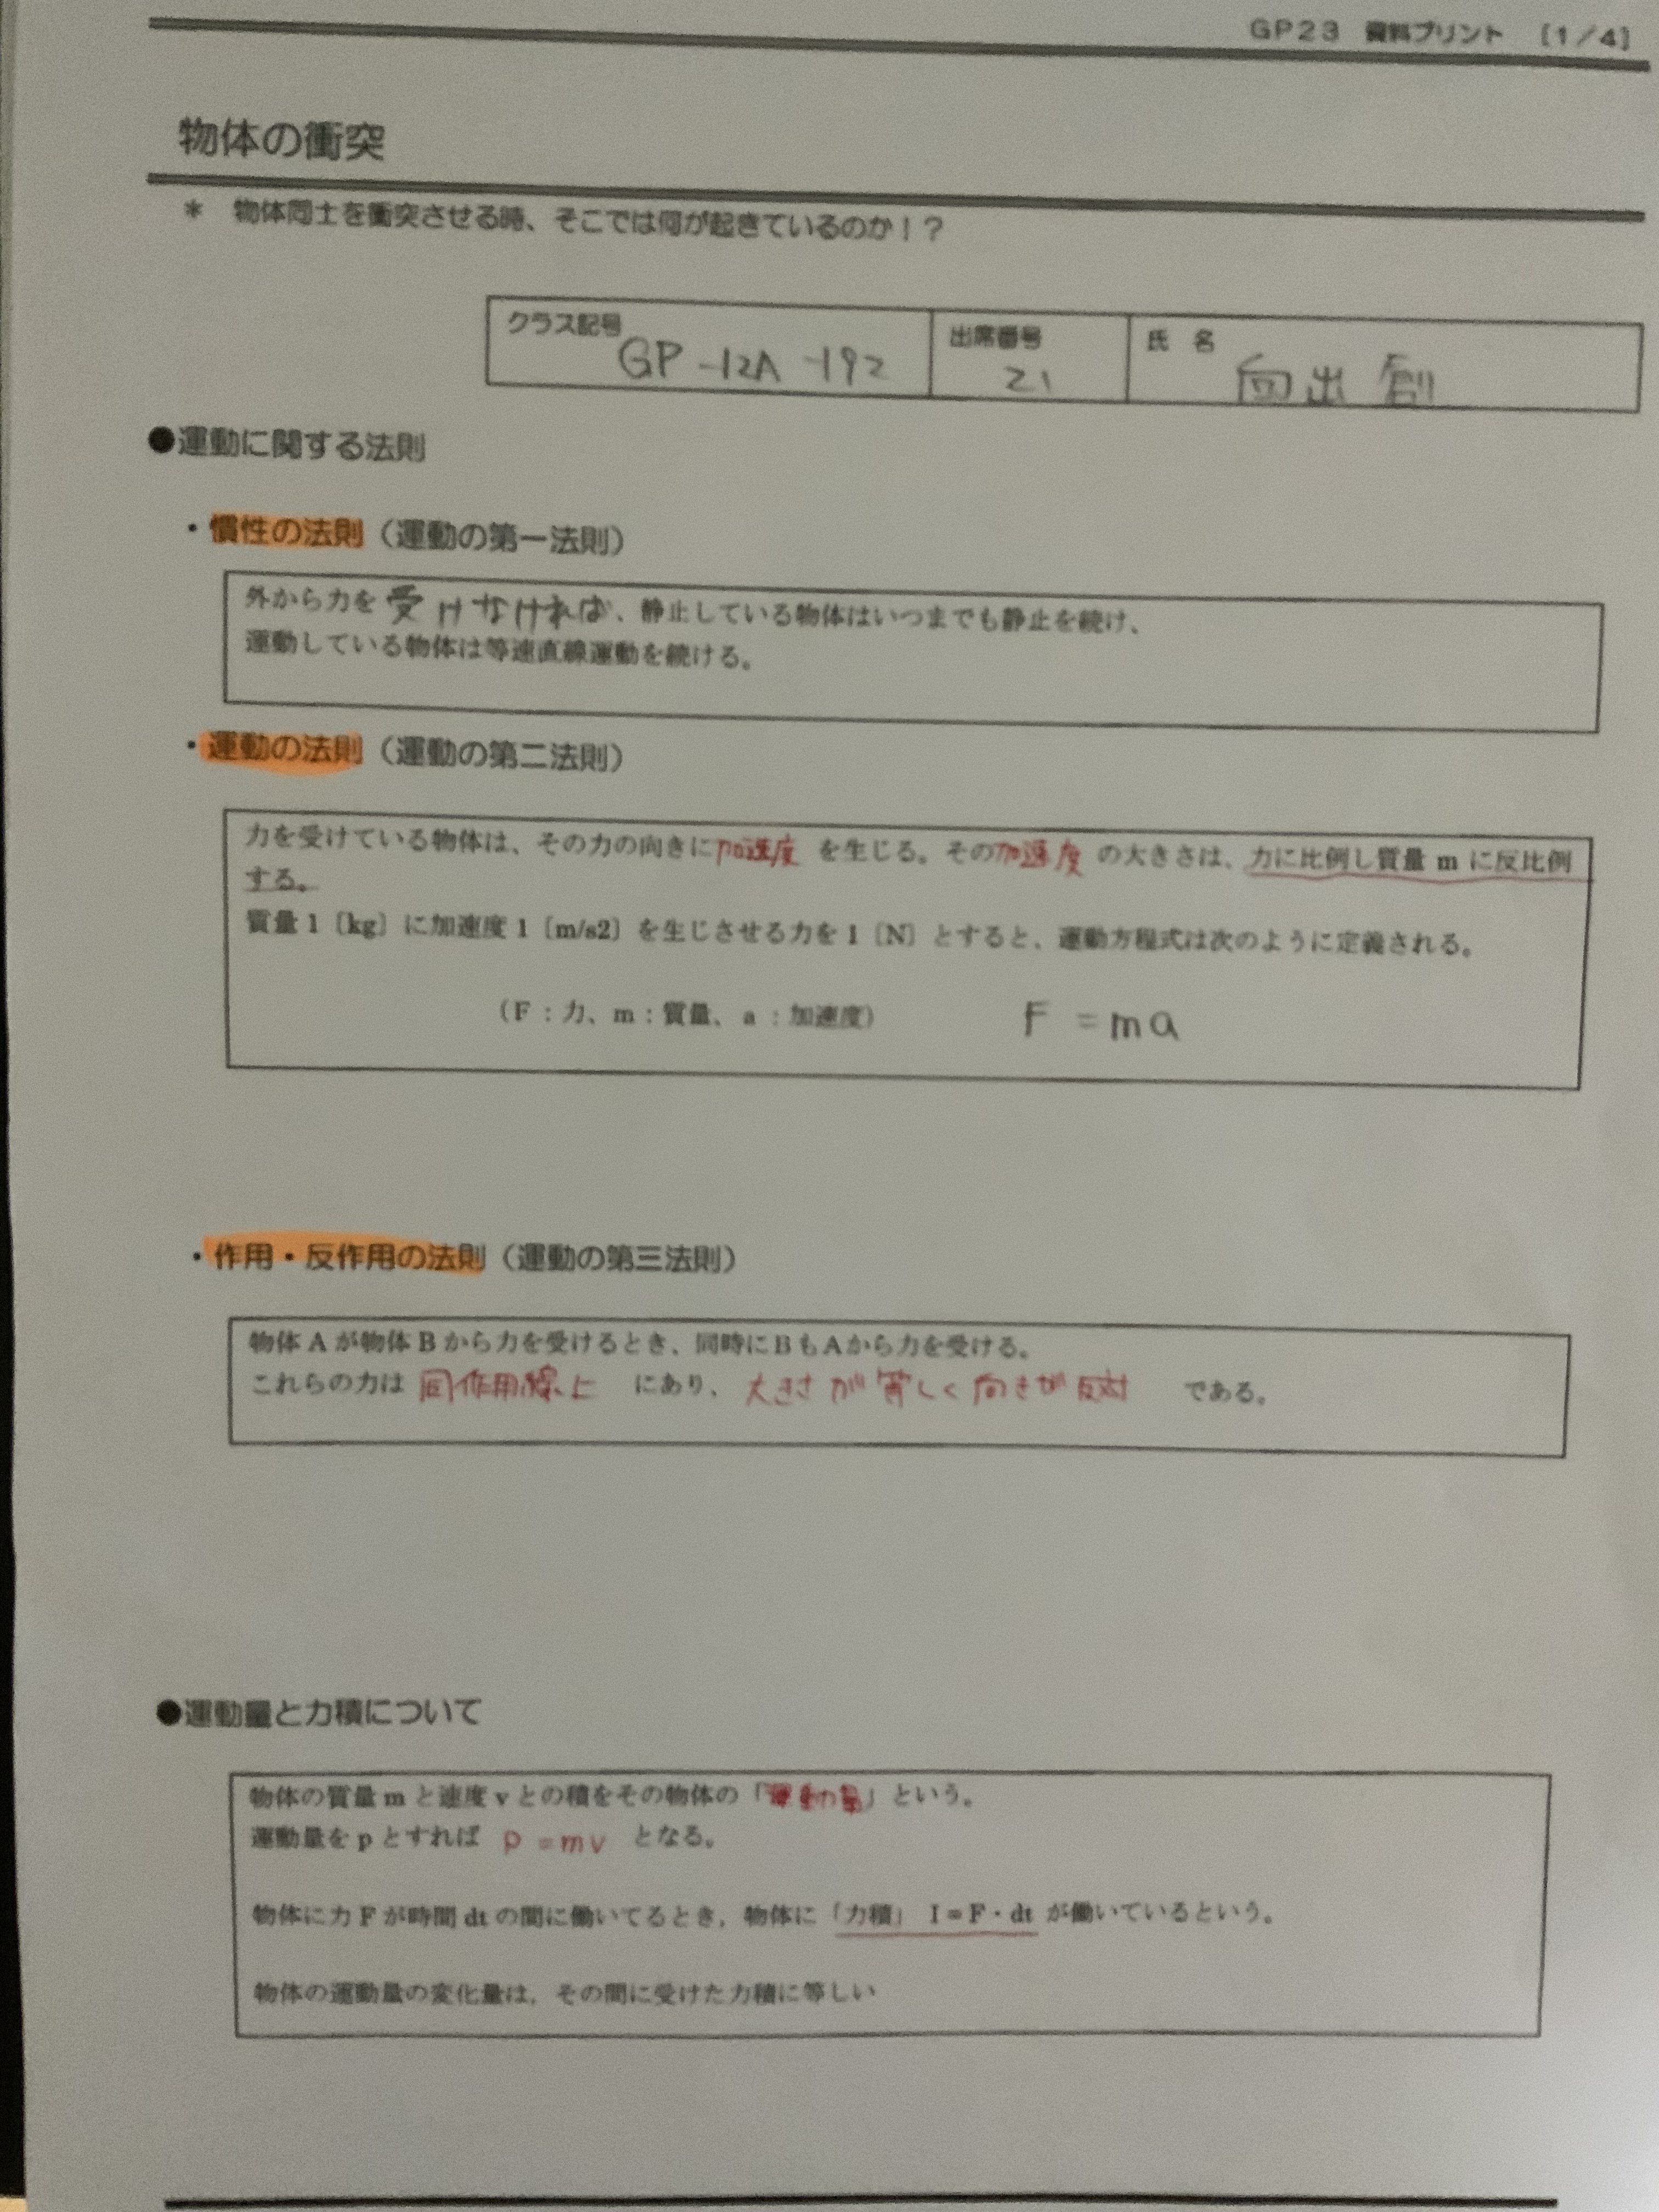 GP23 資料プリント [1/4]
物体の衝突
* 物体同士を衝突させる時、そこでは何が起きているのか!?
クラス記号 出席番号 氏 名
GP-12A-192 21 向出 創
●運動に関する法則
・慣性の法則(運動の第一法則)
外から力を受けなければ、静止している物体はいつまでも静止を続け、
運動している物体は等速直線運動を続ける。
・運動の法則(運動の第二法則)
力を受けている物体は、その力の向きに加速度を生じる。その加速度の大きさは、力に比例し質量 m に反比例
する。
質量 1〔kg〕に加速度 1〔m/s2〕を生じさせる力を 1〔N〕とすると、運動方程式は次のように定義される。
(F:力、m:質量、a:加速度) F=ma
・作用・反作用の法則(運動の第三法則)
物体 A が物体 B から力を受けるとき、同時に B も A から力を受ける。
これらの力は 同作用線上 にあり、大きさが等しく向きが反対 である。
●運動量と力積について
物体の質量 m と速度 v との積をその物体の「運動量」という。
運動量を p とすれば p=mv となる。
物体に力 F が時間 dt の間に働いてるとき,物体に「力積」 I=F・dt が働いているという。
物体の運動量の変化量は,その間に受けた力積に等しい